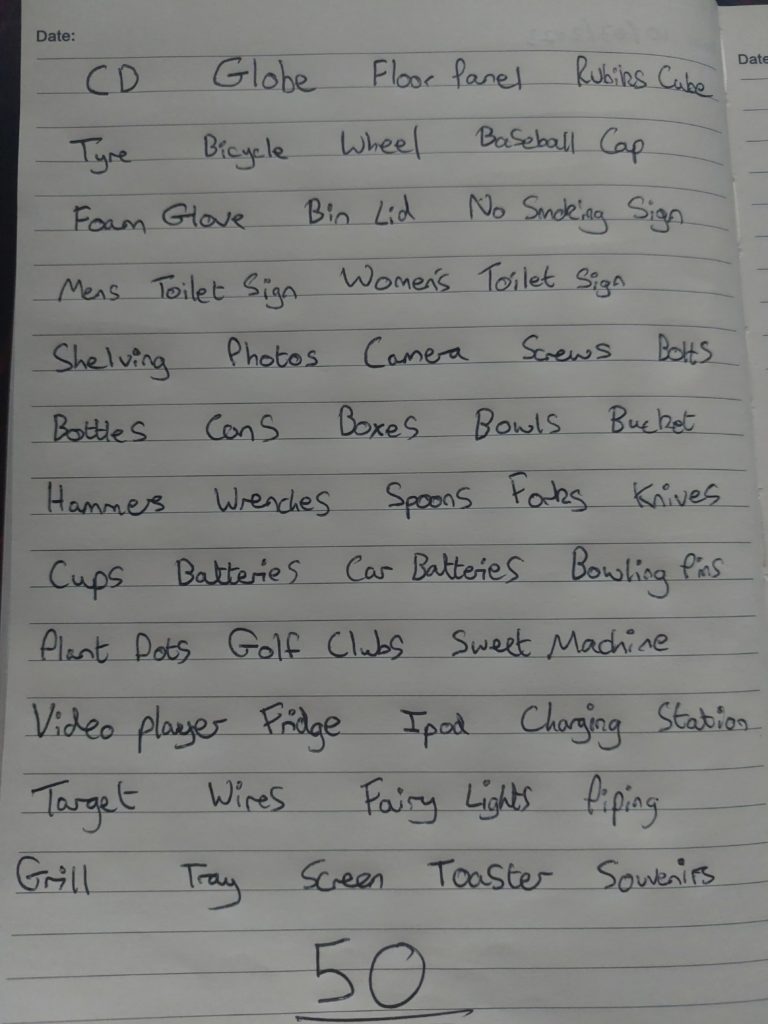 Date:
CD Globe Floor Panel Rubiks Cube
Date
Tyre Bicycle Wheel Baseball Cap
Foam Glove Bin Lid No Smoking Sign
Mens Toilet Sign Women's Toilet Sign
Shelving Photos Camera Screws Bolts
Bottles Cans Boxes Bowls Bucket
Hammers Wrenches Spoons Forks Knives
Cups Batteries Car Batteries Bowling Pins
Plant Pots Golf Clubs Sweet Machine
Video player Fridge Ipod Charging Station
Target Wires Fairy Lights Piping
Grill Tray Screen Toaster Souvenirs
50